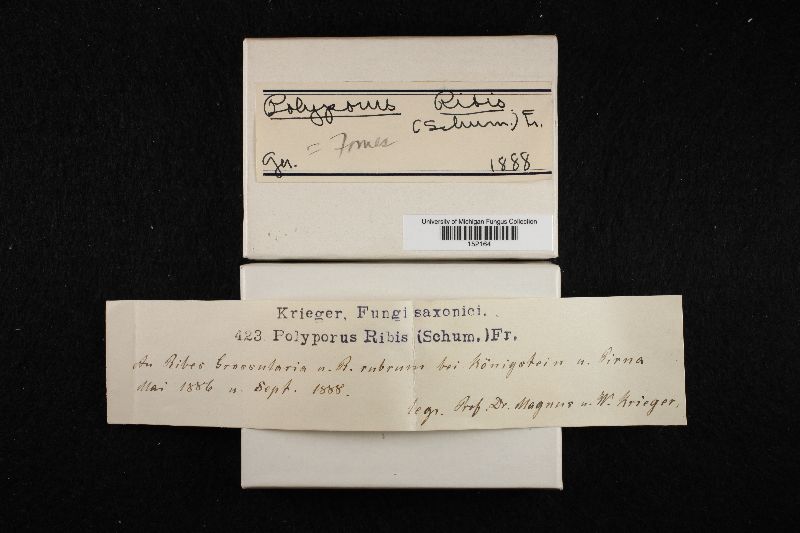 Polyporus Ribis
(Schum.) Fr.
= Fomes
Ger. 1888
University of Michigan Fungus Collection
152164
Krieger, Fungi saxonici.
423. Polyporus Ribis (Schum.) Fr.
An Ribes Grossularia u. R. rubrum bei Königstein u. Pirna
Mai 1886 u. Sept. 1888.
legr. Prof. Dr. Magnus u. W. Krieger.